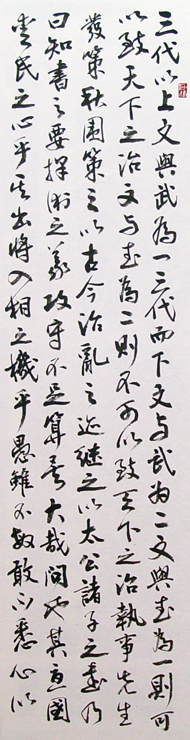 三代以上文與武為一三代而下文与武为二文與武為一則可
以致天下之治文与武為二則不可以致天下之治執事先生
發策秋闈策之以古今治亂之迹继之以太公諸子之書乃
曰知書之要擇術之義攻守不足算矣大哉問也其亶國
爱民之心乎其出將入相之機乎愚雖不敏敢不悉心以